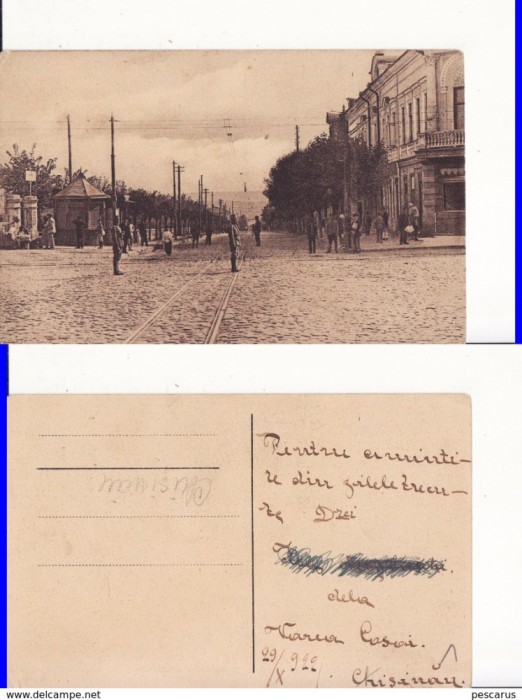 Chisinău
Pentru aminti-
re din zilele trecu-
te Dzei
dela
29/X 929.
Chisinău.
www.delcampe.net
pescarus